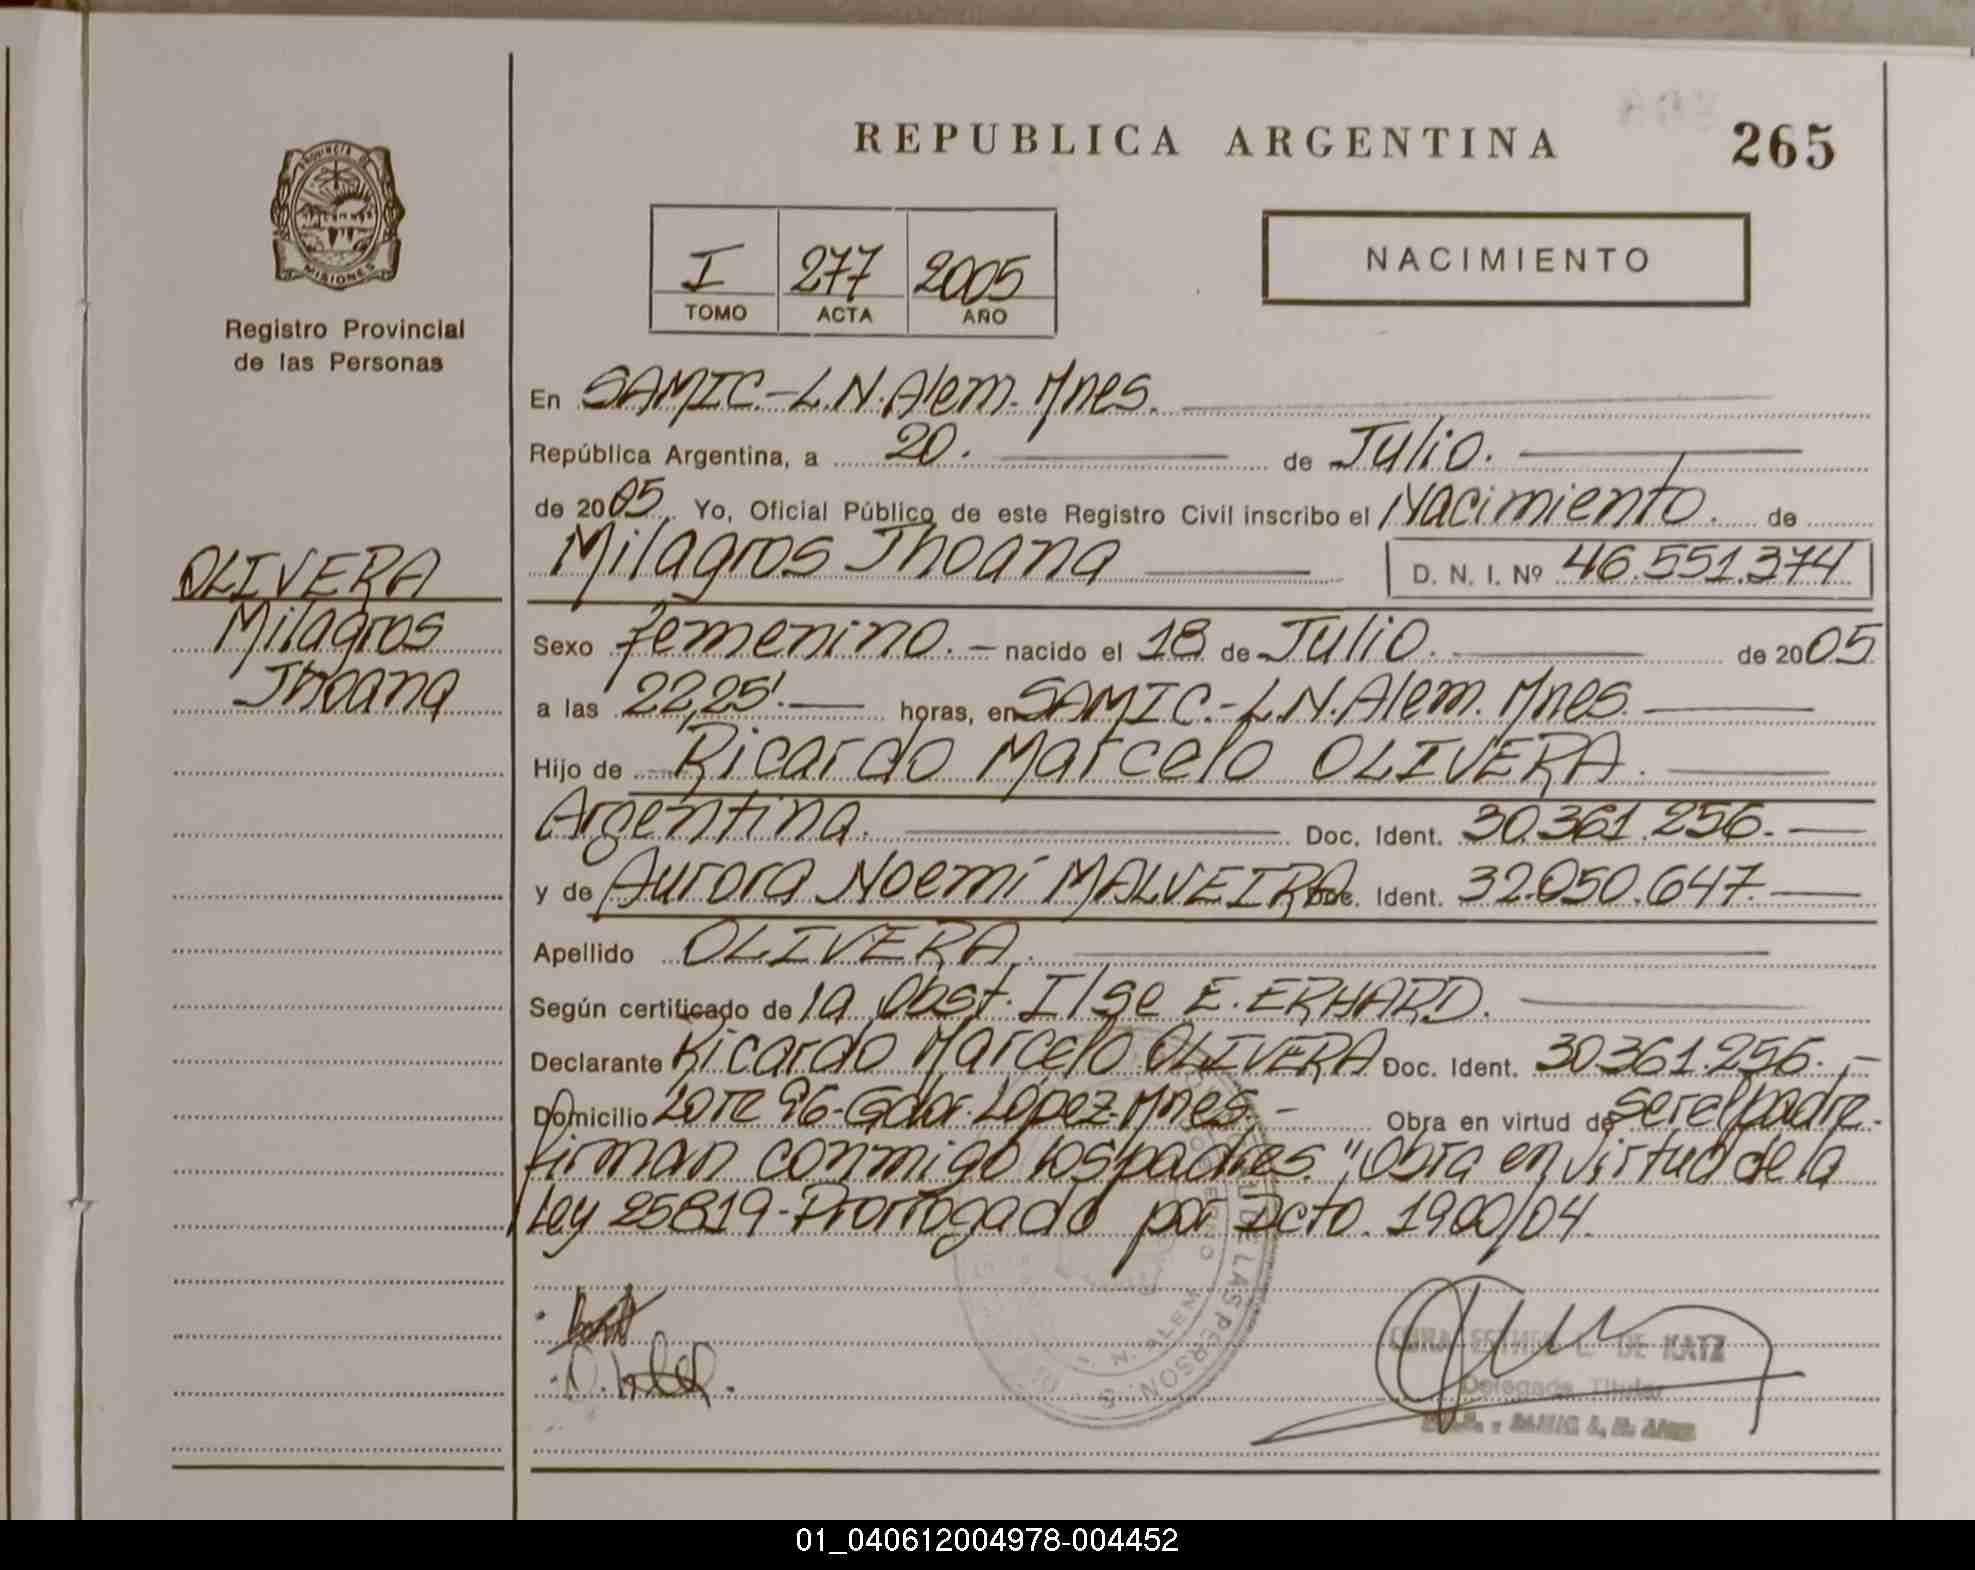 REPUBLICA ARGENTINA
265
PROVINCIA DE
MISIONES
Registro Provincial
de las Personas
I 277 2005
TOMO ACTA AÑO
NACIMIENTO
En SAMIC.-L.N.Alem. Mnes.
República Argentina, a 20. de Julio.
de 2005 Yo, Oficial Público de este Registro Civil inscribo el Nacimiento. de
Milagros Jhoana D. N. I. Nº 46.551.374
OLIVERA
Milagros
Jhoana
Sexo femenino. - nacido el 18 de Julio. de 2005
a las 22,25'. horas, en SAMIC.-L.N.Alem. Mnes.
Hijo de Ricardo Marcelo OLIVERA.
Argentina. Doc. Ident. 30.361.256.
y de Aurora Noemí MALVEIRA Doc. Ident. 32.050.647.
Apellido OLIVERA.
Según certificado de la Obst. Ilse E. ERHARD.
Declarante Ricardo Marcelo OLIVERA Doc. Ident. 30.361.256.-
Domicilio Lote 96-Gdor. López-Mnes.- Obra en virtud de ser el padre-
firman conmigo los padres." Obra en virtud de la
Ley 25819-Prorrogado por Dcto. 1900/04.
DE LAS PERSON
N. ALEM
DE KATZ
Delegada Titular
01_040612004978-004452